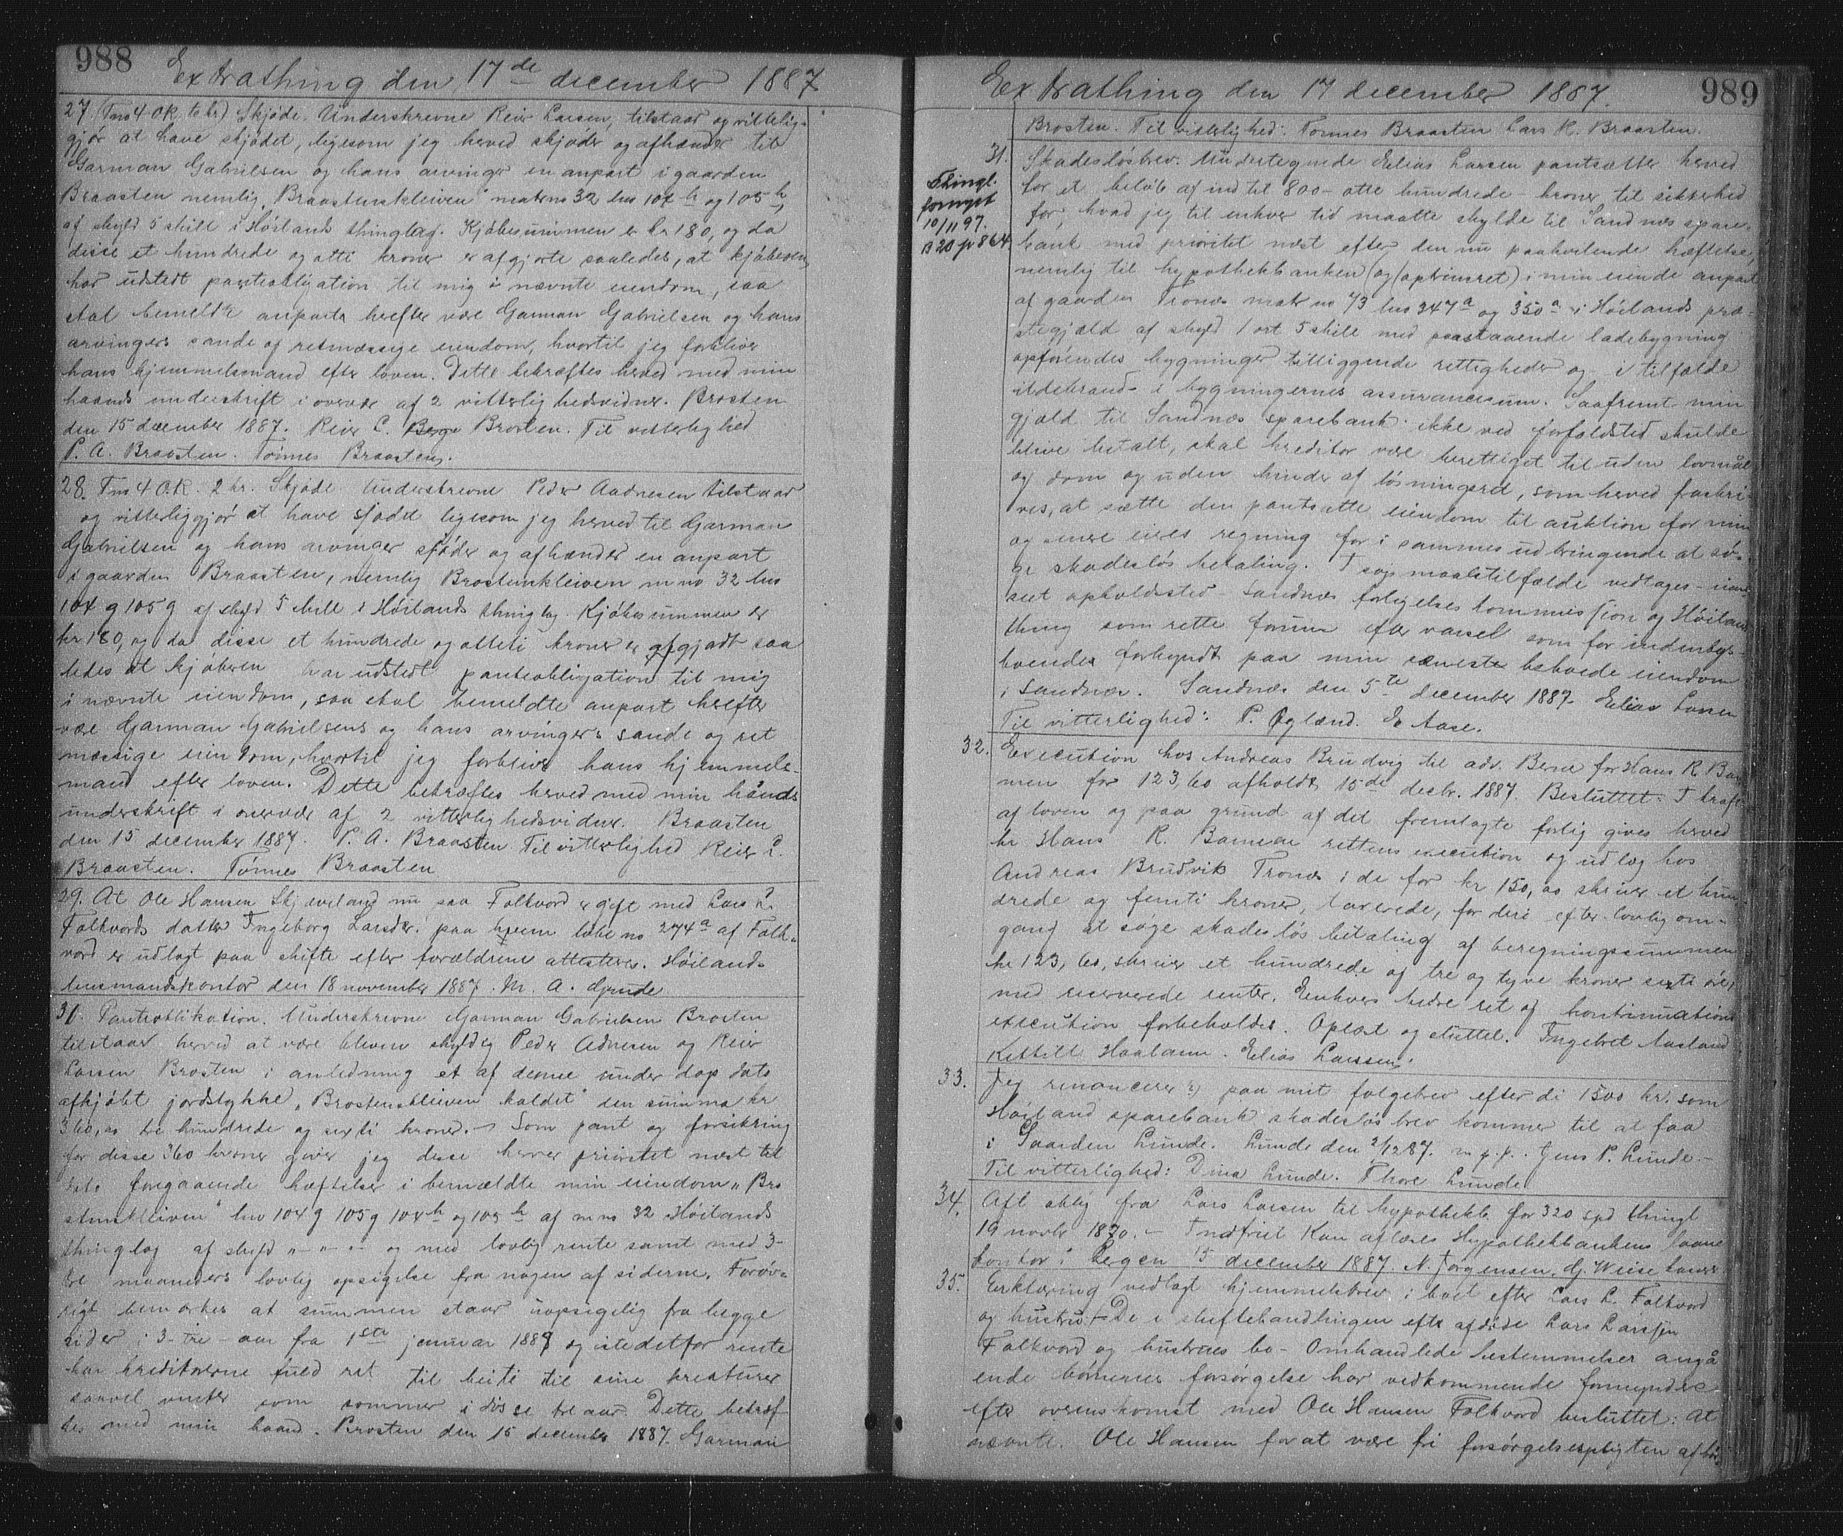 988
Extrathing den 17de december 1887
27. (Tms 4 OK. 2 kr) Skjøde. Underskrevne Reier Larsen, tilstaar og vitterlig-
gjør at have skjødet, ligesom jeg herved skjøder og afhænder til
Garman Gabrielsen og hans arvinger en anpart i gaarden
Braasten nemlig „Braastenskleiven" matr no 32 lno 104 h og 105 h,
af skyld 5 skill i Høilands thinglag. Kjøbesummen er kr 180, og da
disse et hundrede og otti kroner er afgjorte saaledes, at kjøberen
har udstedt panteobligation til mig i nævnte eiendom, saa
skal bemeldte anparts herefter være Garman Gabrielsen og hans
arvingers sande og retmæssige eiendom, hvortil jeg forbliver
hans hjemmelsmand efter loven. Dette bekræftes herved med min
haands underskrift i overvær af 2 vitterlighedsvidner. Brosten
den 15 december 1887. Reier L. Brosten. Til vitterlighed
P. A. Braasten. Tønnes Braasten.
28. Tms 4 O.K. 2 kr. Skjøde. Underskrevne Peder Aadnesen tilstaar
og vitterliggjør at have skjødet ligesom jeg herved til Garman
Gabrielsen og hans arvinger skjøder og afhænder en anpart
i gaarden Braasten, nemlig Brostenskleiven m no 32 lno
104 g 105 g af skyld 5 skill i Høilands thinglag. Kjøbesummen er
kr 180, og da disse et hundrede og otteti kroner er afgjort saa
ledes at kjøberen har udstedt panteobligation til mig
i nævnte eiendom, saa skal bemeldte anpart herefter
være Garman Gabrielsens og hans arvingers sande og ret
mæssige eiendom, hvortil jeg forbliver hans hjemmels-
mand efter loven. Dette bekræftes herved med min hånds
underskrift i overvær af 2 vitterlighedsvidner. Braasten
den 15 december 1887. P. A. Braasten Til vitterlighed Reier L.
Braasten. Tønnes Braasten
29. At Ole Hansen Skjæveland nu paa Folkvord er gift med Lars L.
Folkvords datter Ingeborg Larsdtr. paa hvem løbe no 274a af Folk-
vord er udlagt paa skifte efter forældrene attesteres. Høilands
lensmandskontor den 18 november 1887. M. A. Grude
31. Panteoblikation. Underskrevne Garman Gabrielsen Brosten
tilstaar herved at være bleven skyldig Peder Adnesen og Reier
Larsen Brosten i anledning et af denne under dags dato
afkjøbt jordstykke „Brostenskleiven kaldet" den summa kr
360,00 tre hundrede og sexti kroner. – Som pant og forsikring
for disse 360 kroner giver jeg disse herrer prioritet næst til
dato foregaaende hæftelser i bemældte min eiendom „Bro
stenskleiven" lno 104 g 105 g 104 h og 105 h af m no 32 Høilands
thinglag af skyld „ – „ – og med lovlig rente samt med 3-
tre maaneders lovlig opsigelse fra nogen af siderne. Forøv-
rigt bemærkes at summen staar uopsigelig fra begge
sider i 3- tre - aar fra 1ste januar 1888 og istedetfor rente
har kreditorerne fuld ret til beite til sine kreaturer
saavel vinter som sommer i disse tre aar. Dette bekræf
tes med min haand. Brosten den 15 december 1887. Garman
989
Extrathing den 17 december 1887.
Brosten. Til vitterlighed: Tønnes Braasten Lars R. Braasten.
31. Skadesløsbrev. Undertegnede Elias Larsen pantsætter herved
Thingl.
fornyet
10/11 97.
B 20 p 864
for et beløb af indtil 800 – otte hundrede – kroner til sikkerhed
for hvad jeg til enhver tid maatte skylde til Sandnæs spare-
bank med prioritet næst efter den nu paahvilende hæftelse,
nemlig til hypothekbanken (og (opbriusret) i min eiende anpart
af gaarden Tronæs matr no 43 lno 347a og 350a i Høilands præ-
stegjæld af skyld 1 ort 5 skill med paastaaende ladebygning
opførendes bygninger tilliggende rettigheder og i tilfælde
ildebrand i bygningernes assurancesum. Saafremt min
gjæld til Sandnæs sparebank ikke ved forfaldstid skulde
blive betalt, skal kreditor være berettiget til uden lovmål
og dom og uden hinder af løsningsret, som herved fraskri-
ves, at sætte den pantsatte eiendom til auktion for min
og senere eiers regning for i sammes udbringende at sø-
ge skadesløs betaling. I søgsmaalstilfælde vedtages – uan
seet opholdssted – Sandnæs forligelseskommission og Høilands
thing som rette forum efter varsel som for indenbys-
boende forkyndt paa min seneste beboede eiendom
i Sandnæs. Sandnæs den 5te december 1887. Elias Larsen
Til vitterlighed: P. Øglænd. E Aase.
32. Execution hos Andreas Brudvig til adv. Berner for Hans R Ba
men for 123,60 afholdt 15de decbr. 1887. Besluttet: I kraft
af loven og paa grund af det fremlagte forlig gives herved
hr Hans R. Bamean rettens execution og udlæg hos
Andreas Brudvik Tronæs i de for kr 150,00 skriver et hun
drede og femti kroner, taxerede, for deri efter lovlig om-
gang at søge skadesløs betaling af beregningssummen
kr 123,60, skriver et hundrede og tre og tyve kroner sexti øre,
med reserverede renter. Enhvers bedre ret og kontinuations
execution forbeholdes. Oplæst og sluttet. Ingebret Aasland
Kittill Haaland. Elias Larssen.
33. Jeg renoncerer paa mit følgebrev efter de 1500 kr. som
Høiland sparebank skadesløsbrev kommer til at faa
i Gaarden Lunde. Lunde den 2/12 87. m. p. p. Jens P. Lunde –
Til vitterlighed: Dina Lunde. Thore Lunde
34. Afl oblig fra Lars Larsen til hypothekb. for 320 spd thingl
19 novbr 1870. – Indfriet Kan aflæses Hypothekbankens laane
kontor i Bergen 15 december 1887. N. Jørgensen. Gj. Weise
35. Erklæring vedlagt hjemmelsbrev i boet efter Lars L. Folkvord
og hustru – De i skiftehandlingen efter afdøde Lars Larssen
Folkvord og hustrues bo – Omhandlede bestemmelser angå
ende børnenes forsørgelse har vedkommende formyndere
efter overenskomst med Ole Hansen Folkvord besluttet: At
nævnte Ole Hansen for at være fri forsørgelsespligten af